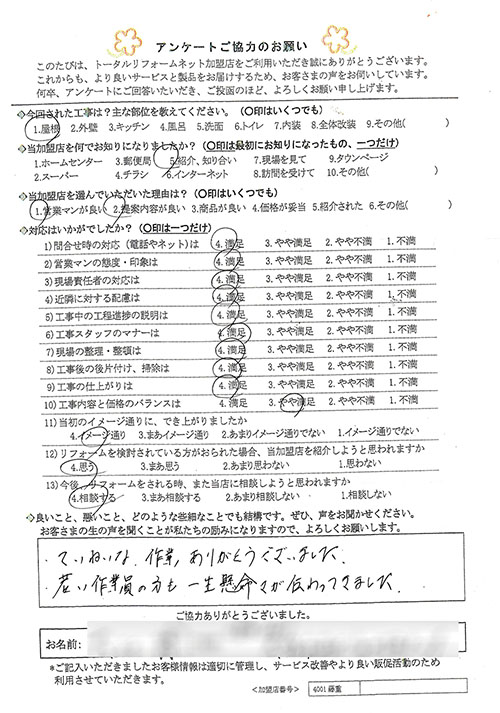 アンケートご協力のお願い
このたびは、トータルリフォームネット加盟店をご利用いただき誠にありがとうございます。
これからも、より良いサービスと製品をお届けするため、お客さまの声をお伺いしています。
何卒、アンケートにご回答いただい、ご投函のほど、よろしくお願い申し上げます。
◇今回された工事は？主な部位を教えてください。（〇印はいくつでも）
1.屋根 2.外壁 3.キッチン 4.風呂 5.洗面 6.トイレ 7.内装 8.全体改装 9.その他( )
◇当加盟店を何でお知りになりましたか？（〇印は最初にお知りになったもの、一つだけ）
1.ホームセンター 3.郵便局 5.紹介、知り合い 7.現場を見て 9.タウンページ
2.スーパー 4.チラシ 6.インターネット 8.訪問を受けて 10.その他( )
◇当加盟店を選んでいただいた理由は？（〇印はいくつでも）
1.営業マンが良い 2.提案内容が良い 3.商品が良い 4.価格が妥当 5.紹介された 6.その他( )
◇対応はいかがでしたか？（〇印は一つだけ）
1)問合せ時の対応（電話やネット）は 4.満足 3.やや満足 2.やや不満 1.不満
2)営業マンの態度・印象は 4.満足 3.やや満足 2.やや不満 1.不満
3)現場責任者の対応は 4.満足 3.やや満足 2.やや不満 1.不満
4)近隣に対する配慮は 4.満足 3.やや満足 2.やや不満 1.不満
5)工事中の工程進捗の説明は 4.満足 3.やや満足 2.やや不満 1.不満
6)工事スタッフのマナーは 4.満足 3.やや満足 2.やや不満 1.不満
7)現場の整理・整頓は 4.満足 3.やや満足 2.やや不満 1.不満
8)工事後の後片付け、掃除は 4.満足 3.やや満足 2.やや不満 1.不満
9)工事の仕上がりは 4.満足 3.やや満足 2.やや不満 1.不満
10)工事内容と価格のバランスは 4.満足 3.やや満足 2.やや不満 1.不満
11)当初のイメージ通りに、でき上がりましたか
4.イメージ通り 3.まあイメージ通り 2.あまりイメージ通りでない 1.イメージ通りでない
12)リフォームを検討されている方がおられた場合、当加盟店を紹介しようと思われますか
4.思う 3.まあ思う 2.あまり思わない 1.思わない
13)今後、リフォームをされる時、また当店に相談しようと思われますか
4.相談する 3.まあ相談する 2.あまり相談しない 1.相談しない
◇良いこと、悪いこと、どのような些細なことでも結構です。ぜひ、声をお聞かせください。
お客さまの生の声を聞くことが私たちの励みになりますので、よろしくお願いします。
・ていねいな、作業、ありがとうございました。
・若い作業員の方も一生懸命さが伝わってきました。
ご協力ありがとうございました。
お名前:
*ご記入いただきましたお客様情報は適切に管理し、サービス改善やより良い販促活動のため
利用させていただきます。
<加盟店番号> 4001 藤重